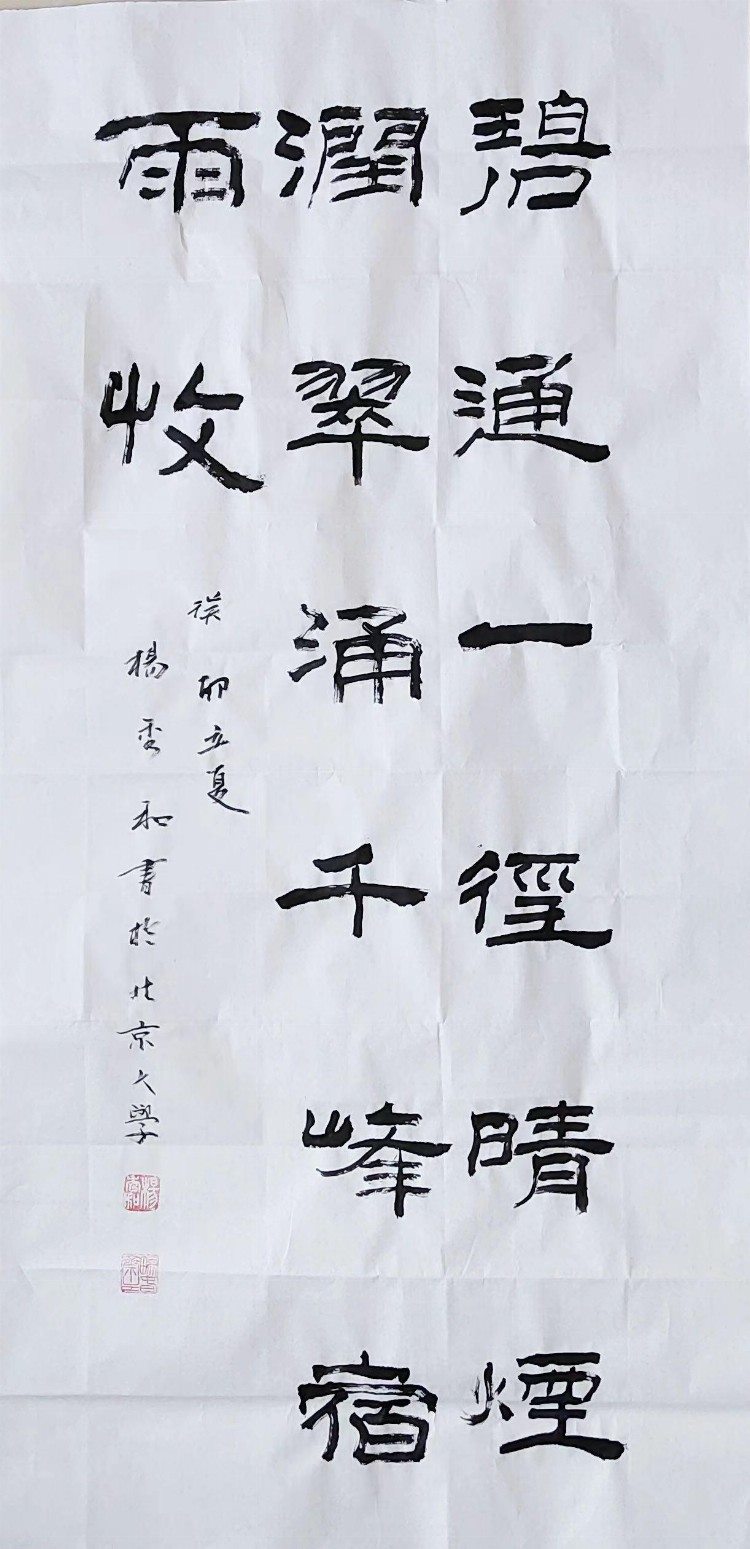 碧通一徑晴煙
潤翠涌千峰宿
雨收
癸卯立夏
楊秀和書於北京大學